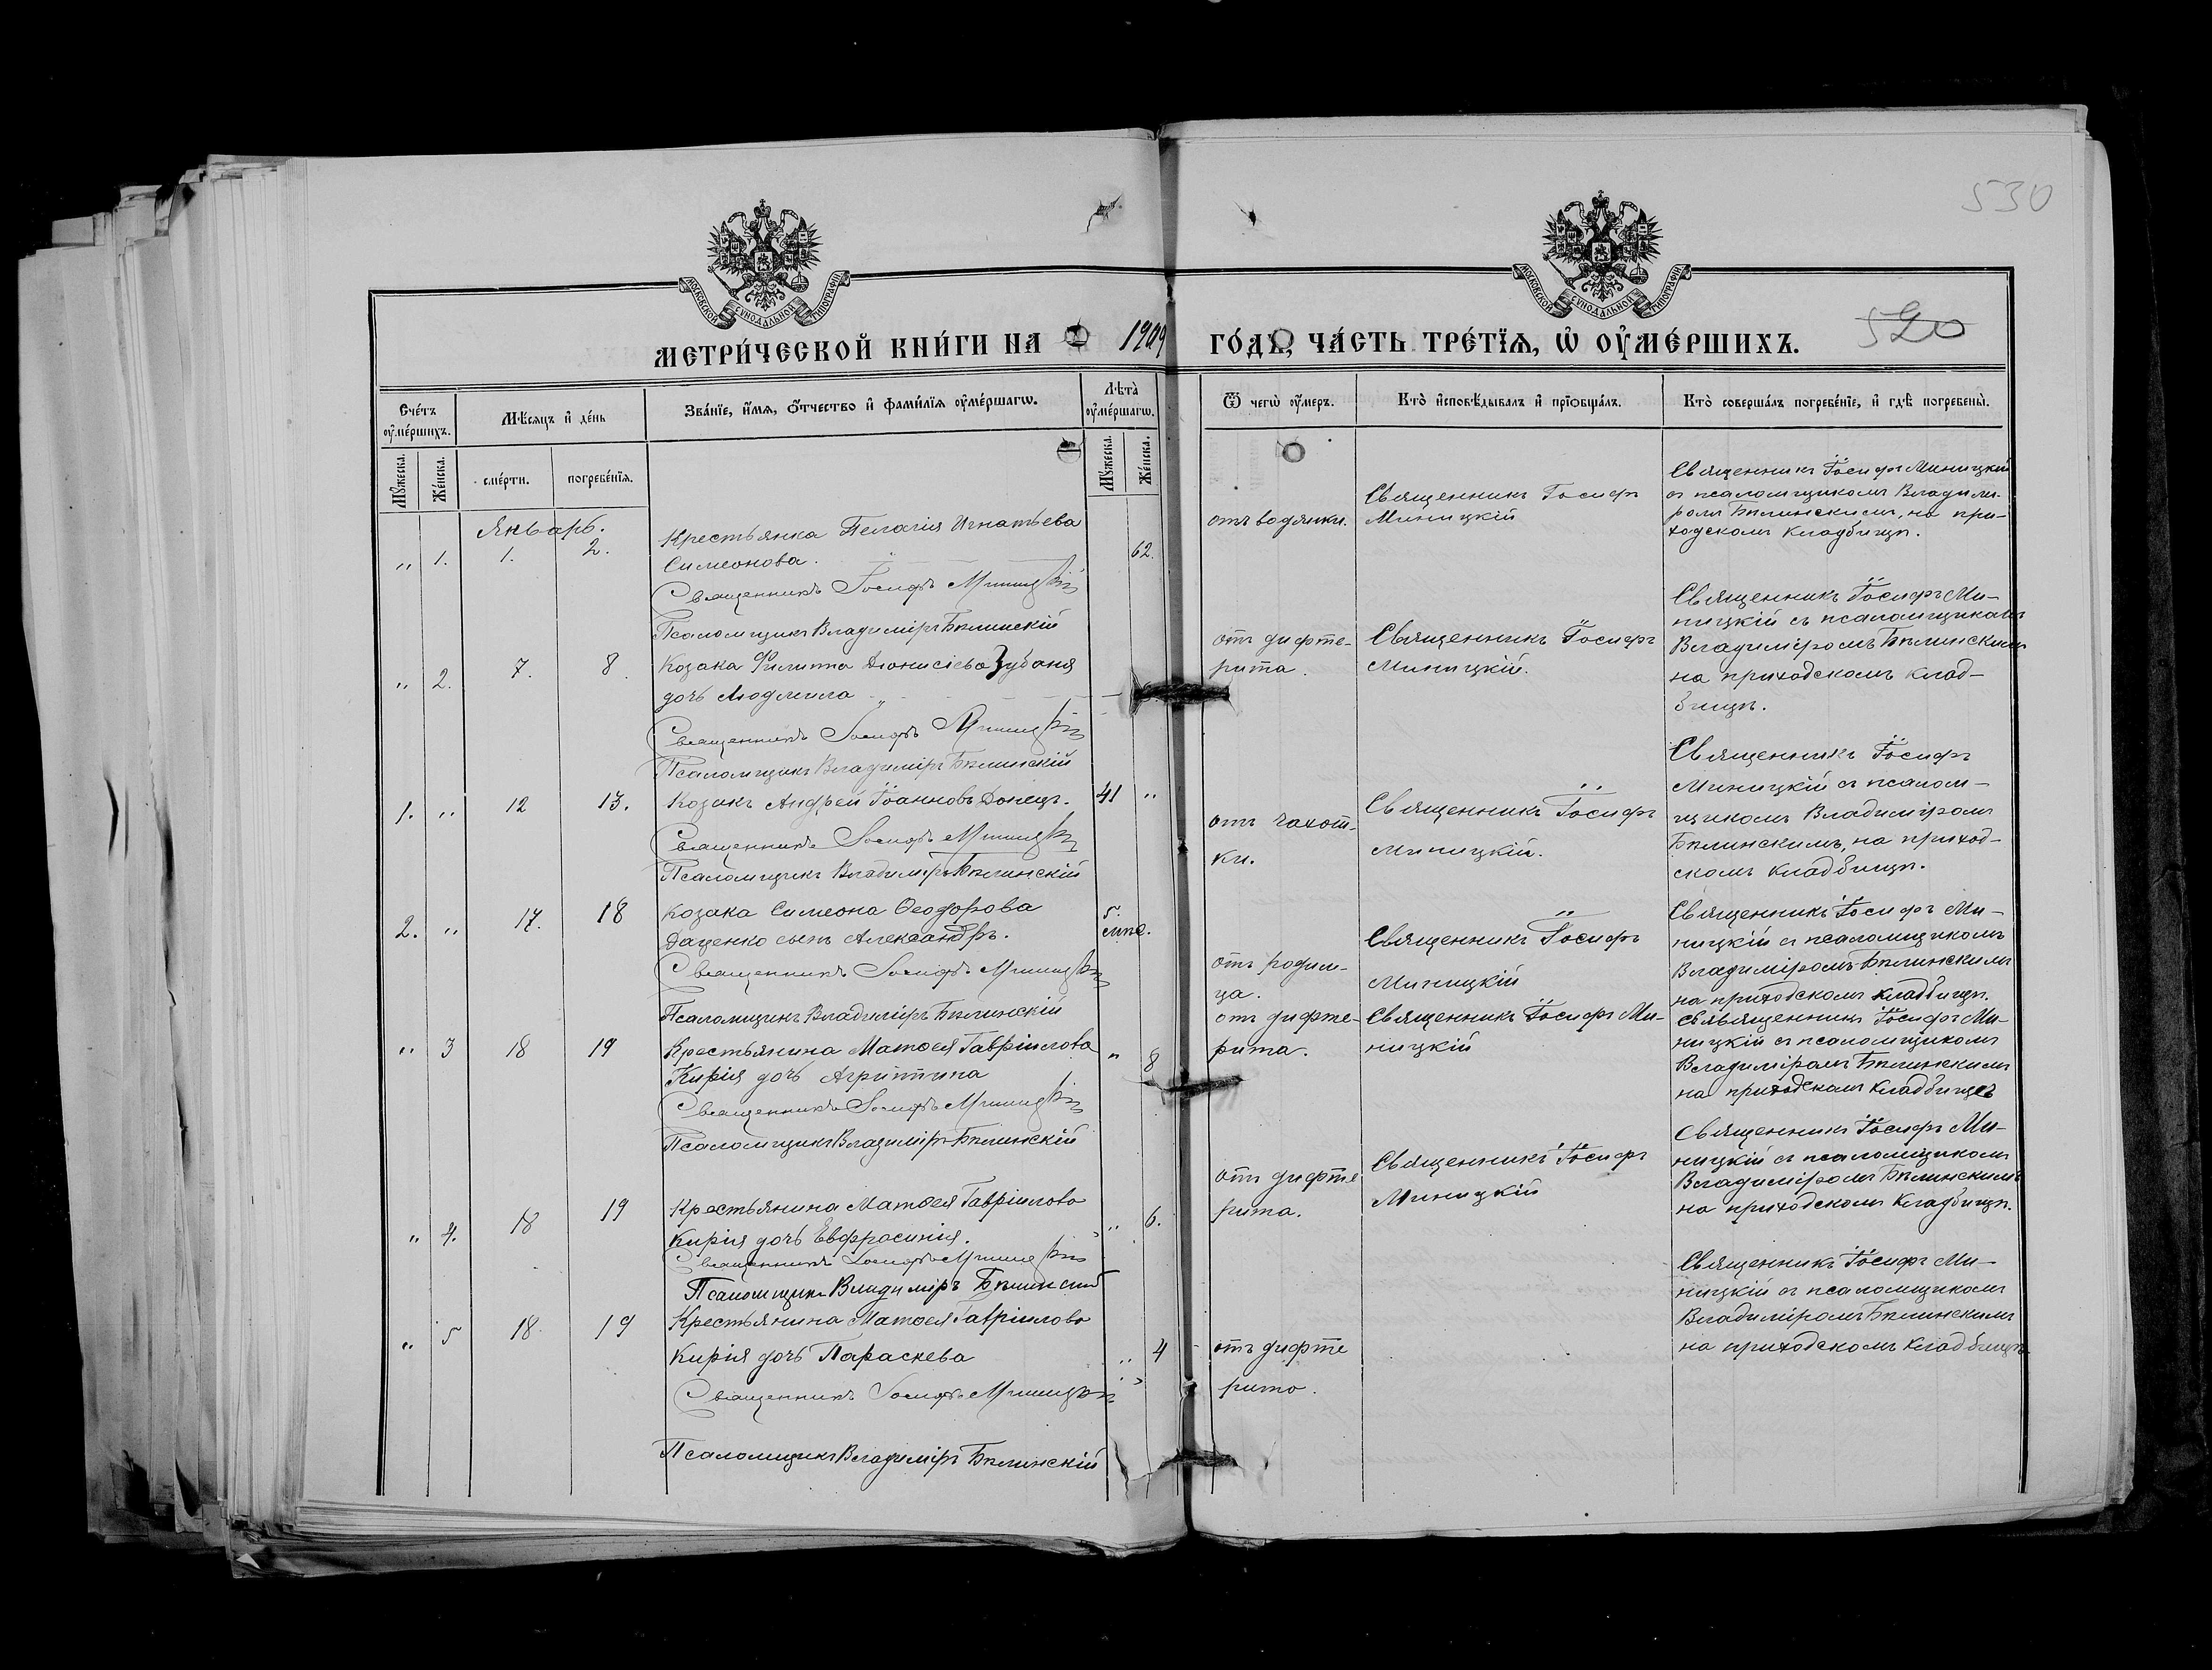 530
МОСКОВСКОЙ СУНОДАЛЬНОЙ ТИПОГРАФІИ
МОСКОВСКОЙ СУНОДАЛЬНОЙ ТИПОГРАФІИ
МЕТРИ́ЧЕСКОЙ КНИ́ГИ НА 1909 ГО́ДЪ, ЧА́СТЬ ТРЕ́ТЇѦ, Ѡ҆ ОУ҆МЕ́РШИХЪ.
520
Сче́тъ оу҆ме́ршихъ.
Мѣ́сяцъ и҆ де́нь
Зва́нїе, и҆́мѧ, ѻ҆́тчество и҆ фами́лїѧ оу҆ме́ршагѡ.
Лѣ́та оу҆ме́ршагѡ.
Ѿ чегѡ̀ оу҆́меръ.
Кто̀ и҆сповѣ́дывалъ и҆ прїѡбща́лъ.
Кто̀ соверша́лъ погребе́нїе, и҆ гдѣ̀ погребены̀.
Мꙋ́жеска.
Же́нска.
сме́рти.
погребе́нїѧ.
Мꙋ́жеска.
Же́нска.
Январь.
" 1. 1. 2.
Крестьянка Пелагія Игнатьева
Симеонова.
62.
Священникъ Іосифъ Миницкій
Псаломщикъ Владиміръ Бѣлинскій
отъ водянки.
Священникъ Іосифъ
Миницкій
Священникъ Іосифъ Миницкій
съ псаломщикомъ Владими-
ромъ Бѣлинскимъ, на при-
ходскомъ кладбищѣ.
" 2. 7. 8.
Козака Филиппа Діонисіева Зубаня
дочь Людмила
Священникъ Іосифъ Миницкій
Псаломщикъ Владиміръ Бѣлинскій
отъ дифте-
рита.
Священникъ Іосифъ
Миницкій.
Священникъ Іосифъ Ми-
ницкій съ псаломщикомъ
Владиміромъ Бѣлинскимъ
на приходскомъ клад-
бищѣ.
1. " 12 13.
Козакъ Андрей Іоанновъ Донецъ.
41 "
Священникъ Іосифъ Миницкій
Псаломщикъ Владиміръ Бѣлинскій
отъ чахот-
ки.
Священникъ Іосифъ
Миницкій.
Священникъ Іосифъ
Миницкій съ псалом-
щикомъ Владиміромъ
Бѣлинскимъ, на приход-
скомъ кладбищѣ.
2. " 17. 18
Козака Симеона Ѳеодорова
Даценко сынъ Александръ.
5
Священникъ Іосифъ Миницкій
Псаломщикъ Владиміръ Бѣлинскій
отъ родим-
ца.
Священникъ Іосифъ
Миницкій
Священникъ Іосифъ Ми-
ницкій съ псаломщикомъ
Владиміромъ Бѣлинскимъ
на приходскомъ кладбищѣ.
" 3 18 19
Крестьянина Матѳея Гавріилова
Кирія дочь Агриппина
" 8
Священникъ Іосифъ Миницкій
Псаломщикъ Владиміръ Бѣлинскій
отъ дифте-
рита.
Священникъ Іосифъ Ми-
ницкій
Священникъ Іосифъ Ми-
ницкій съ псаломщикомъ
Владиміромъ Бѣлинскимъ
на приходскомъ кладбищѣ
" 4. 18 19
Крестьянина Матѳея Гавріилова
Кирія дочь Евфросинія.
" 6.
Священникъ Іосифъ Миницкій
Псаломщикъ Владиміръ Бѣлинскій
отъ дифте
рита.
Священникъ Іосифъ
Миницкій
Священникъ Іосифъ Ми-
ницкій съ псаломщикомъ
Владиміромъ Бѣлинскимъ
на приходскомъ кладбищѣ.
" 5 18 19
Крестьянина Матѳея Гавріилова
Кирія дочь Параскева
" 4
Священникъ Іосифъ Миницкій
Псаломщикъ Владиміръ Бѣлинскій
отъ дифте
рита.
Священникъ Іосифъ Ми-
ницкій съ псаломщикомъ
Владиміромъ Бѣлинскимъ
на приходскомъ кладбищѣ